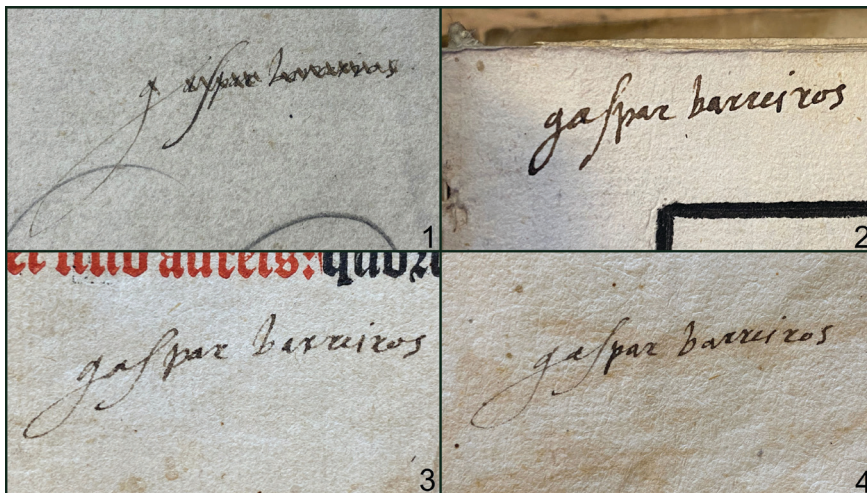 gaspar barreiros
1
gaspar barreiros
2
et uno aureis: quor
gaspar barreiros
3
gaspar barreiros
4